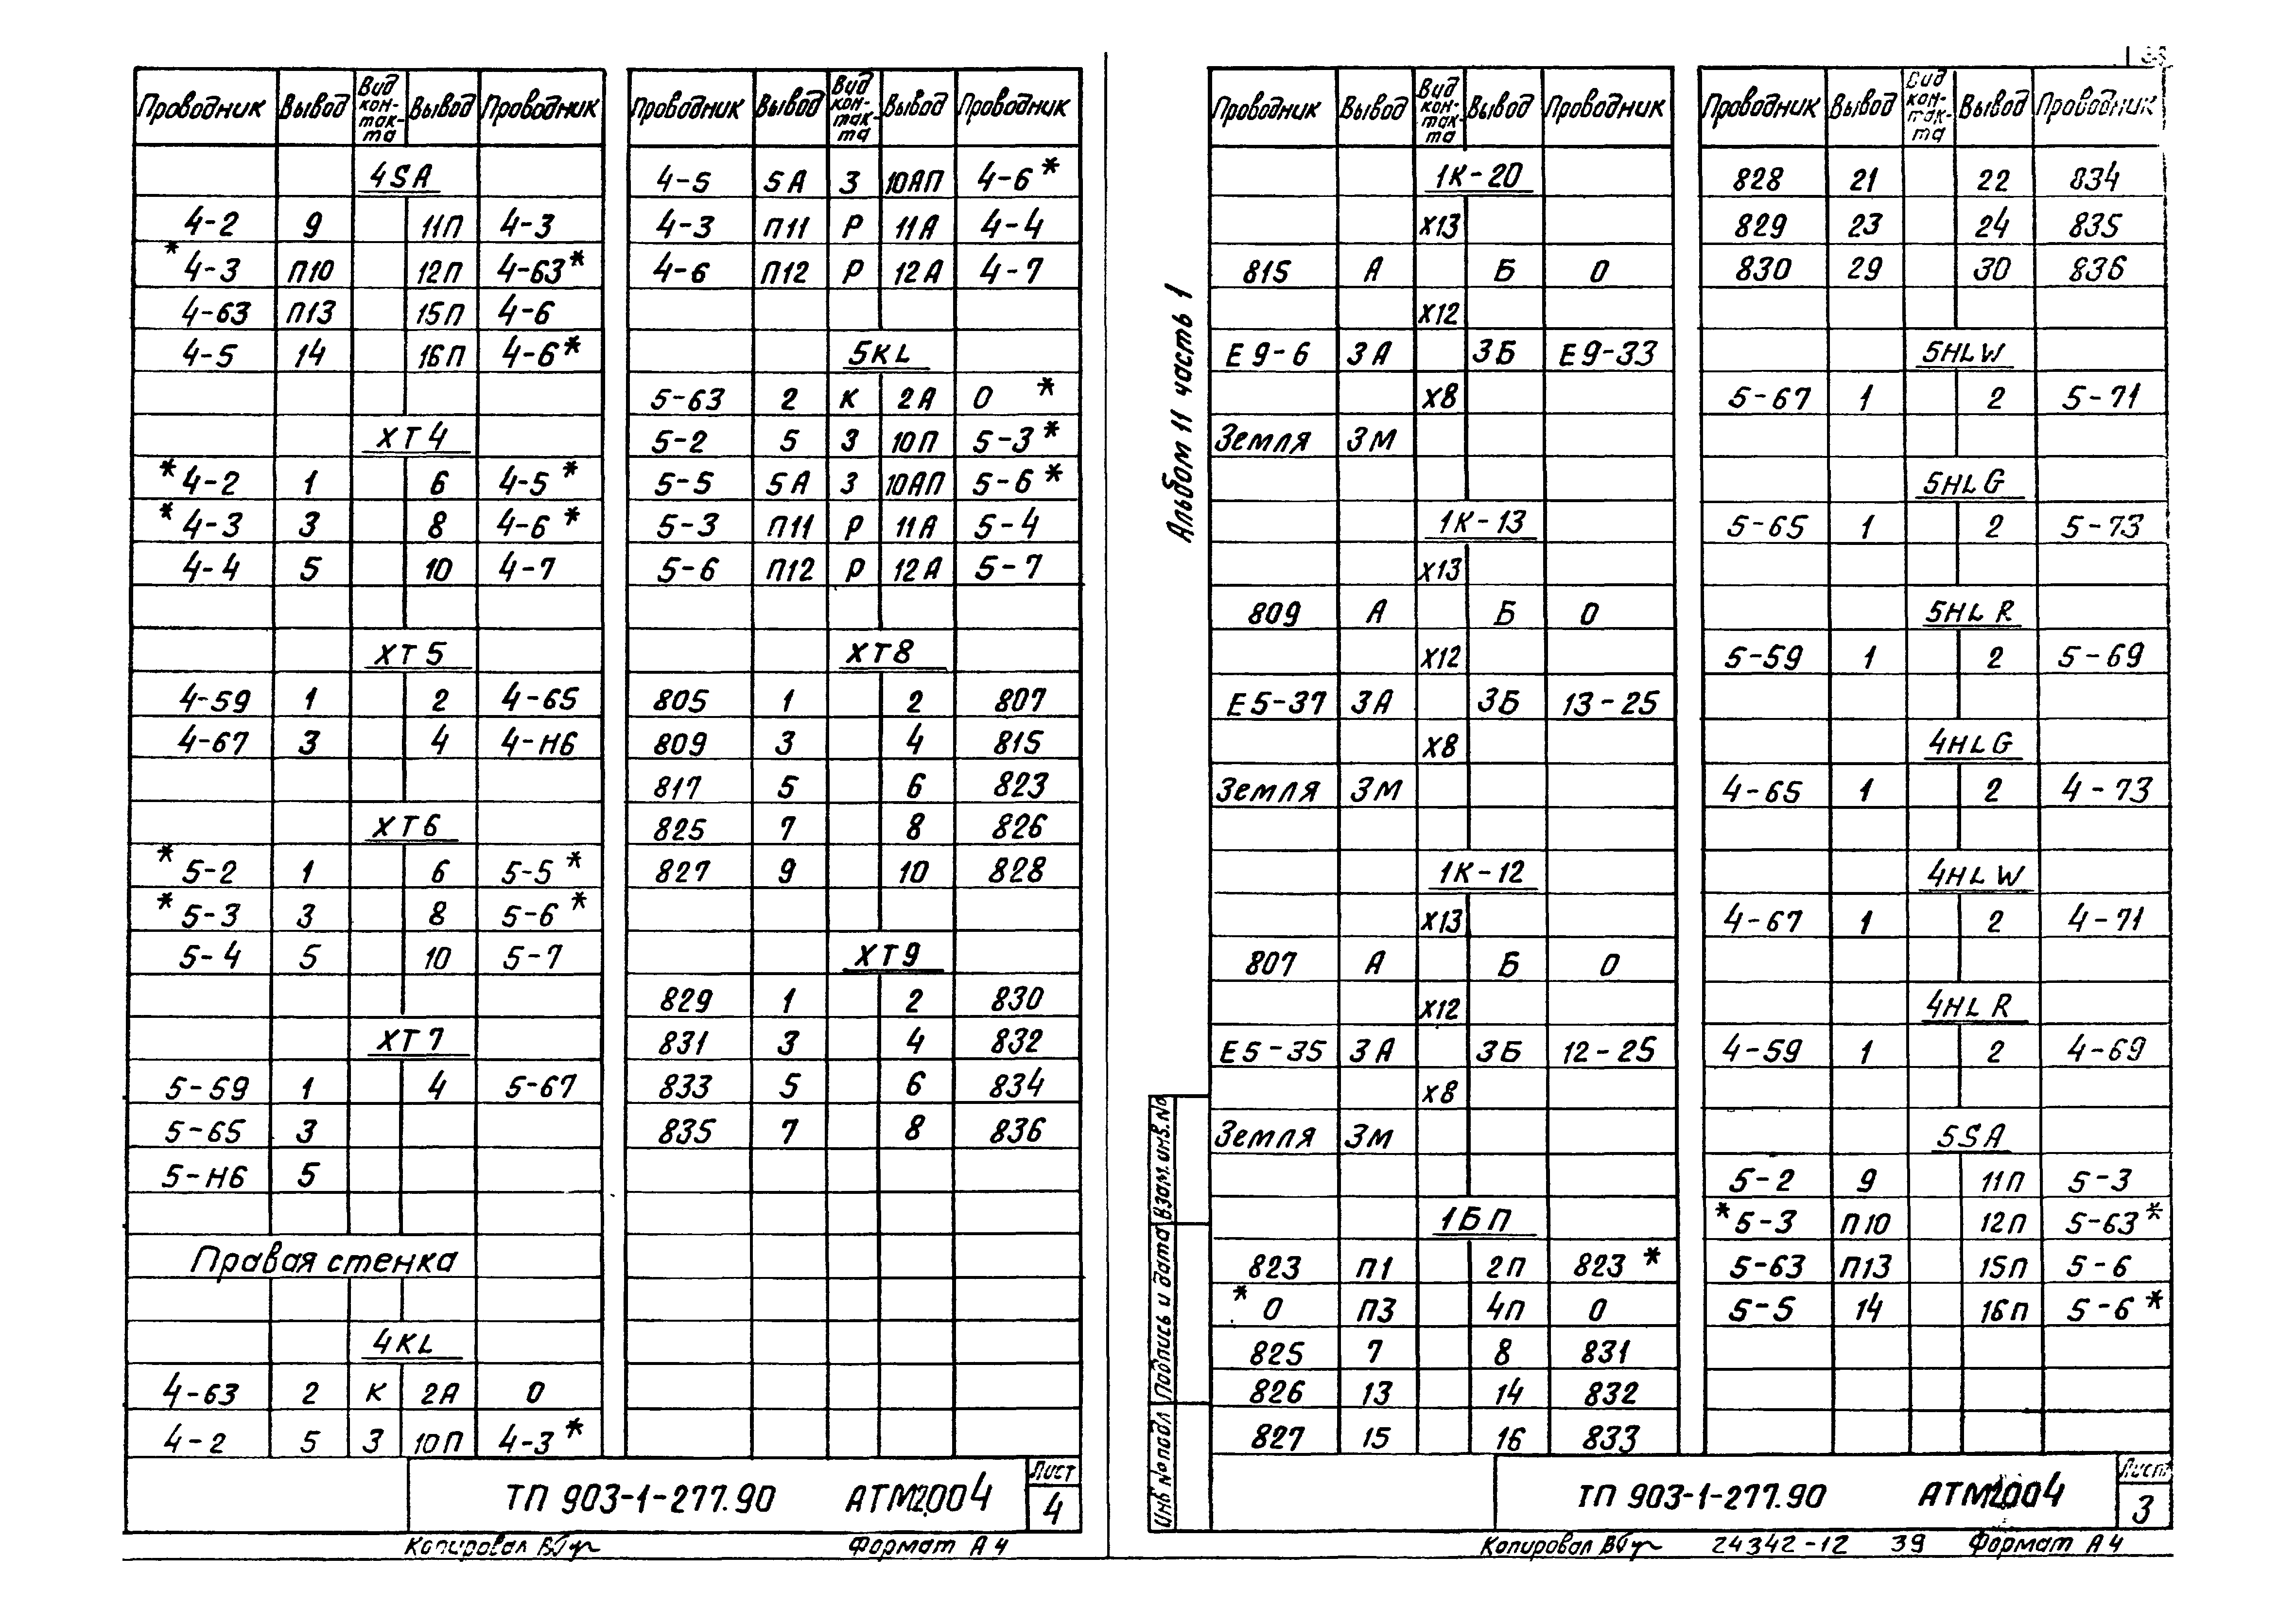 Проводник Вывод Вид кон-так-та Вывод Проводник
4SA
4-2 9 11П 4-3
*4-3 П10 12П 4-63*
4-63 П13 15П 4-6
4-5 14 16П 4-6*
XT4
*4-2 1 6 4-5*
*4-3 3 8 4-6*
4-4 5 10 4-7
XT5
4-59 1 2 4-65
4-67 3 4 4-Н6
XT6
*5-2 1 6 5-5*
*5-3 3 8 5-6*
5-4 5 10 5-7
XT7
5-59 1 4 5-67
5-65 3
5-Н6 5
Правая стенка
4KL
4-63 2 К 2А 0
4-2 5 З 10П 4-3*
Проводник Вывод Вид кон-так-та Вывод Проводник
4-5 5А З 10АП 4-6*
4-3 П11 Р 11А 4-4
4-6 П12 Р 12А 4-7
5KL
5-63 2 К 2А 0 *
5-2 5 З 10П 5-3*
5-5 5А З 10АП 5-6*
5-3 П11 Р 11А 5-4
5-6 П12 Р 12А 5-7
XT8
805 1 2 807
809 3 4 815
817 5 6 823
825 7 8 826
827 9 10 828
XT9
829 1 2 830
831 3 4 832
833 5 6 834
835 7 8 836
ТП 903-1-277.90 АТМ2.004
Лист
4
Копировал
Формат А4
Альбом 11 часть 1
Проводник Вывод Вид кон-так-та Вывод Проводник
1К-20
Х13
815 А Б 0
Х12
Е9-6 3А 3Б Е9-33
Х8
Земля 3М
1К-13
Х13
809 А Б 0
Х12
Е5-37 3А 3Б 13-25
Х8
Земля 3М
1К-12
Х13
807 А Б 0
Х12
Е5-35 3А 3Б 12-25
Х8
Земля 3М
1БП
823 П1 2П 823 *
*0 П3 4П 0
825 7 8 831
826 13 14 832
827 15 16 833
Проводник Вывод Вид кон-так-та Вывод Проводник
828 21 22 834
829 23 24 835
830 29 30 836
5HLW
5-67 1 2 5-71
5HLG
5-65 1 2 5-73
5HLR
5-59 1 2 5-69
4HLG
4-65 1 2 4-73
4HLW
4-67 1 2 4-71
4HLR
4-59 1 2 4-69
5SA
5-2 9 11П 5-3
*5-3 П10 12П 5-63*
5-63 П13 15П 5-6
5-5 14 16П 5-6*
Инв № подл Подпись и дата Взам. инв. №
ТП 903-1-277.90 АТМ2.004
Лист
3
Копировал
24342-12 39 Формат А4